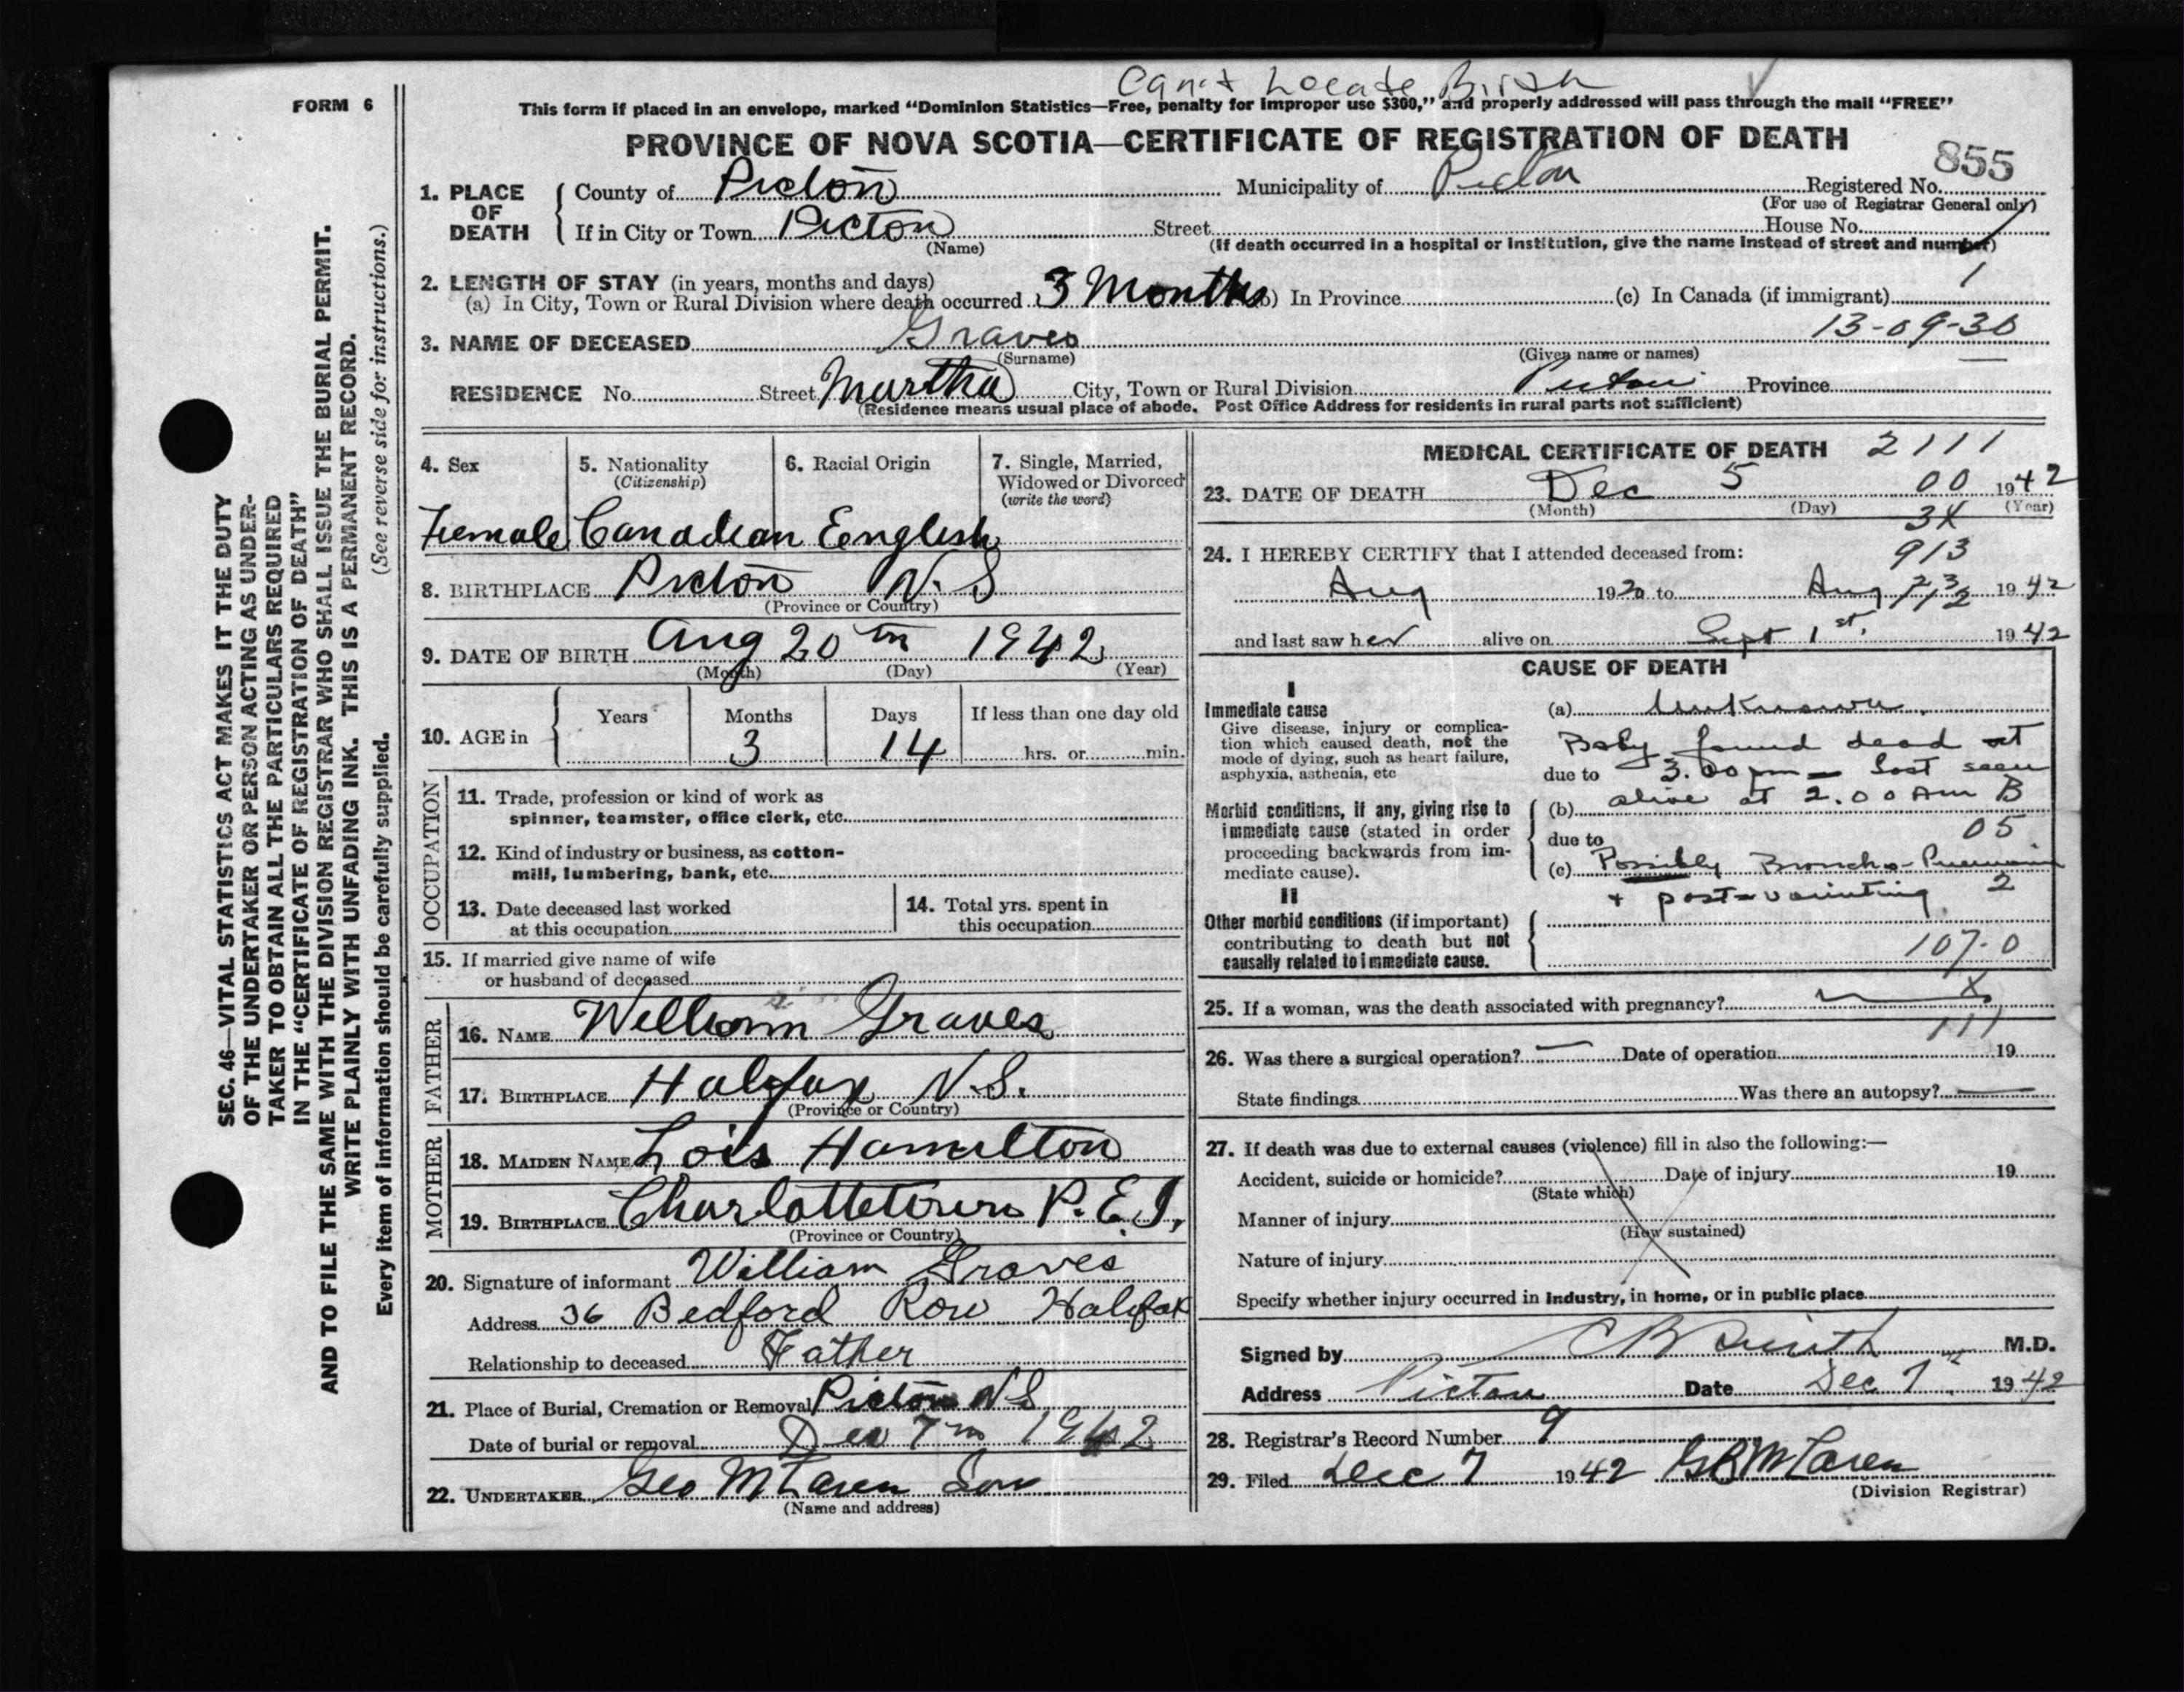 Can't Locate Birth
FORM 6
This form if placed in an envelope, marked "Dominion Statistics—Free, penalty for improper use $300," and properly addressed will pass through the mail "FREE"
PROVINCE OF NOVA SCOTIA—CERTIFICATE OF REGISTRATION OF DEATH
855
1. PLACE OF DEATH
County of Pictou Municipality of Pictou Registered No.
(For use of Registrar General only)
If in City or Town Pictou Street House No.
(Name) (If death occurred in a hospital or institution, give the name instead of street and number)
1
2. LENGTH OF STAY (in years, months and days)
(a) In City, Town or Rural Division where death occurred 3 Months (b) In Province (c) In Canada (if immigrant)
13-09-30
3. NAME OF DECEASED Graves
(Surname) (Given name or names)
RESIDENCE No. Street Martha City, Town or Rural Division Pictou Province
(Residence means usual place of abode. Post Office Address for residents in rural parts not sufficient)
4. Sex
Female
5. Nationality
(Citizenship)
Canadian
6. Racial Origin
Eenglish
7. Single, Married,
Widowed or Divorced
(write the word)
8. BIRTHPLACE Pictou N.S
(Province or Country)
9. DATE OF BIRTH Aug 20th 1942
(Month) (Day) (Year)
10. AGE in
Years Months Days If less than one day old
3 14 hrs. or min.
OCCUPATION
11. Trade, profession or kind of work as
spinner, teamster, office clerk, etc.
12. Kind of industry or business, as cotton-
mill, lumbering, bank, etc.
13. Date deceased last worked
at this occupation
14. Total yrs. spent in
this occupation
15. If married give name of wife
or husband of deceased
FATHER
16. NAME William Graves
17. BIRTHPLACE Halifax N.S.
(Province or Country)
MOTHER
18. MAIDEN NAME Lois Hamilton
19. BIRTHPLACE Charlottetown P.E.I.
(Province or Country)
20. Signature of informant William Graves
Address 36 Bedford Row Halifax
Relationship to deceased Father
21. Place of Burial, Cremation or Removal Pictou N S
Date of burial or removal Dec 7th 1942
22. UNDERTAKER Geo McLaren Son
(Name and address)
MEDICAL CERTIFICATE OF DEATH 2111
23. DATE OF DEATH Dec 5 00 1942
(Month) (Day) (Year)
3X
24. I HEREBY CERTIFY that I attended deceased from:
913
Aug 1920 to Aug 1942
and last saw her alive on Sept 1st. 1942
CAUSE OF DEATH
I
Immediate cause
Give disease, injury or complica-
tion which caused death, not the
mode of dying, such as heart failure,
asphyxia, asthenia, etc
(a) Unknown.
Baby found dead at
due to 3.00 pm — Last seen
alive at 2.00 am B
Morbid conditions, if any, giving rise to
immediate cause (stated in order
proceeding backwards from im-
mediate cause).
(b)
due to 05
(c) Possibly Broncho-Pneumonia
+ post-vomiting 2
II
Other morbid conditions (if important)
contributing to death but not
causally related to immediate cause.
107-0
25. If a woman, was the death associated with pregnancy? X
111
26. Was there a surgical operation? — Date of operation 19
State findings Was there an autopsy? —
27. If death was due to external causes (violence) fill in also the following:—
Accident, suicide or homicide? Date of injury 19
(State which)
Manner of injury
(How sustained)
Nature of injury
Specify whether injury occurred in industry, in home, or in public place
Signed by C B Smith M.D.
Address Pictou Date Dec 7th 1942
28. Registrar's Record Number 9
29. Filed Dec 7 1942 G B McLaren
(Division Registrar)
SEC. 46—VITAL STATISTICS ACT MAKES IT THE DUTY
OF THE UNDERTAKER OR PERSON ACTING AS UNDER-
TAKER TO OBTAIN ALL THE PARTICULARS REQUIRED
IN THE "CERTIFICATE OF REGISTRATION OF DEATH"
AND TO FILE THE SAME WITH THE DIVISION REGISTRAR WHO SHALL ISSUE THE BURIAL PERMIT.
WRITE PLAINLY WITH UNFADING INK. THIS IS A PERMANENT RECORD.
Every item of information should be carefully supplied. (See reverse side for instructions.)